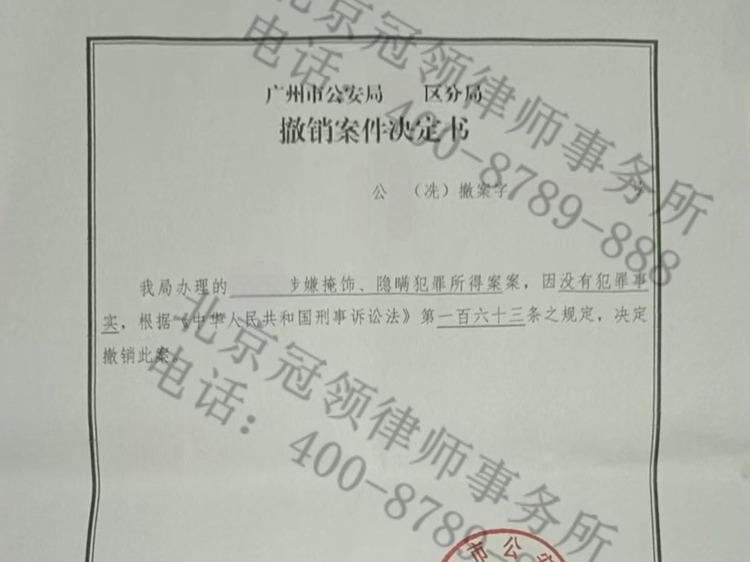 北京冠领律师事务所
电话：400-8789-888
广州市公安局 区分局
撤销案件决定书
公 （冼）撤案字 号
我局办理的 涉嫌掩饰、隐瞒犯罪所得案案，因没有犯罪事
实，根据《中华人民共和国刑事诉讼法》第一百六十三条之规定，决定
撤销此案。
北京冠领律师事务所
电话：400-8789-
市公安